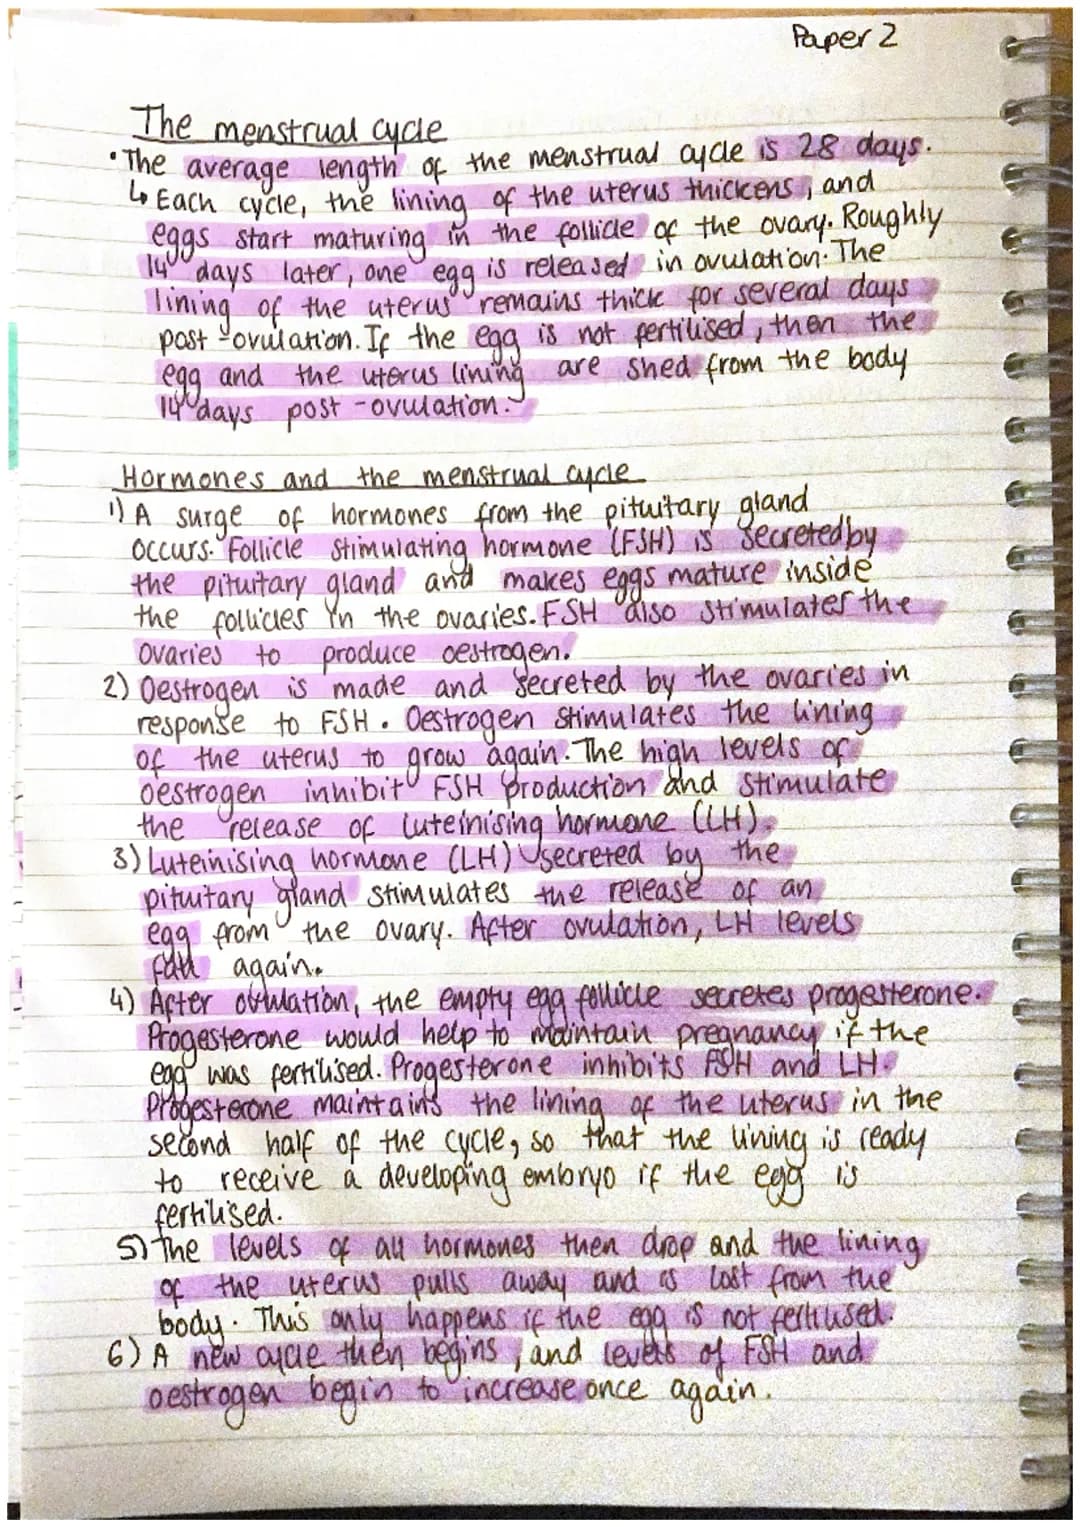 Paper 2
The menstrual cycle
• The average length of the menstrual cycle is 28 days.
↳ Each cycle, the lining of the uterus thickens, and
eggs start maturing in the follicle of the ovary. Roughly
14 days later, one egg is released in ovulation. The
lining of the uterus remains thick for several days
post-ovulation. If the egg is not fertilised, then the
egg and the uterus lining are shed from the body
14 days post-ovulation.
Hormones and the menstrual cycle
1) A surge of hormones from the pituitary gland
occurs. Follicle stimulating hormone (FSH) is secreted by
the pituitary gland and makes eggs mature inside
the follicles in the ovaries. FSH also stimulates the
ovaries to produce oestrogen.
2) Oestrogen is made and secreted by the ovaries in
response to FSH. Oestrogen stimulates the lining
of the uterus to grow again. The high levels of
oestrogen inhibit FSH production and stimulate
the release of luteinising hormone (LH).
3) Luteinising hormone (LH) secreted by the
pituitary gland stimulates the release of an
egg from the ovary. After ovulation, LH levels
fall again.
4) After ovulation, the empty egg follicle secretes progesterone.
Progesterone would help to maintain pregnancy if the
egg was fertilised. Progesterone inhibits FSH and LH.
Progesterone maintains the lining of the uterus in the
second half of the cycle, so that the lining is ready
to receive a developing embryo if the egg is
fertilised.
5) The levels of all hormones then drop and the lining
of the uterus pulls away and is lost from the
body. This only happens if the egg is not fertilised.
6) A new cycle then begins, and levels of FSH and
oestrogen begin to increase once again.